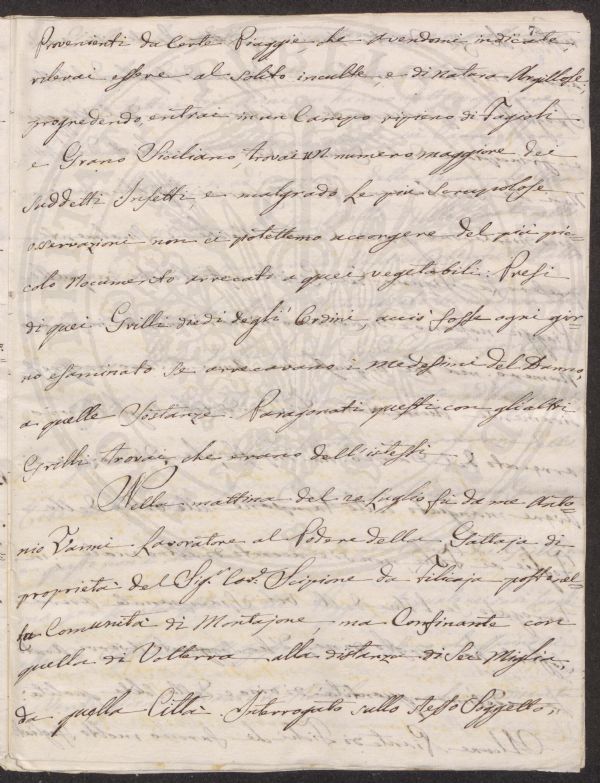 7
Provenienti da Certe Piaggie, che avendomi indicate,
rilevai essere al solito inculte, e di natura Argillose,
progredendo, entrai in un Campo ripieno di Fagioli
e Grano Siciliano trovai un numero maggiore dei
suddetti Insetti, e malgrado le più scrupolose
osservazioni non ci potettemo accorgere del più pic=
colo nocumento arrecato a quei vegetabili. Presi
di quei Grilli diedi degli Ordini, acciò fosse ogni gior=
no esaminato se arrecavano i medesimi del Danno,
a quelle Sostanze. Paragonati questi con gli altri
Grilli trovai, che erano dell'istessi.
Nella mattina del 12 Luglio fù da me Anto=
nio Vanni Lavoratore al Podere della Gattaja di
proprietà del Sig.r Cav.r Scipione da Filicaja posto nel=
la Comunità di Montajone, ma Confinante con
quella di Volterra alla distanza di Sei Miglia,
da quella Città. Interrogato sullo stesso Soggetto,